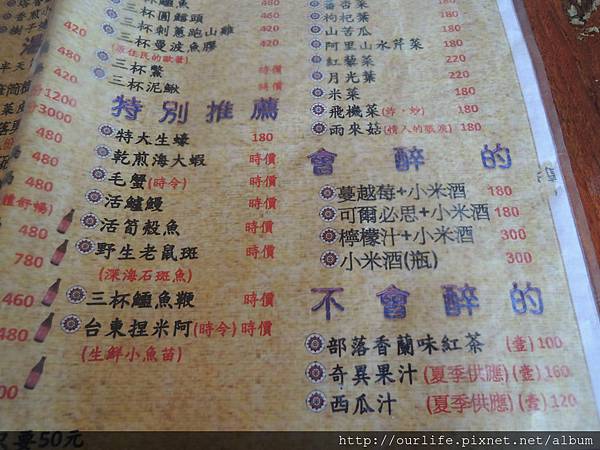 三杯鱷魚
三杯圓鱈頭 420
三杯剌蔥跑山雞 420
三杯曼波魚膠 420
(原住民的歐蕾)
三杯鱉 時價
三杯泥鰍 時價
特別推薦
特大生蠔 180
乾煎海大蝦 時價
毛蟹(時令) 時價
活鱸鰻 時價
活筍殼魚 時價
野生老鼠斑 時價
(深海石斑魚)
三杯鱷魚鞭 時價
台東捏米阿(時令) 時價
(生鮮小魚苗)
420
480
420
480
220
1200
3000
480
480
480
480
780
460
480
只要50元
枸杞葉 180
山苦瓜 180
阿里山水芹菜 180
紅藜菜 220
月光葉 220
米菜 180
飛機菜(炸·炒) 180
雨來菇(情人的眼淚) 180
會醉的
蔓越莓+小米酒 180
可爾必思+小米酒 180
檸檬汁+小米酒 300
小米酒(瓶) 300
不會醉的
部落香蘭味紅茶 (壺)100
奇異果汁 (夏季供應) (壺)160
西瓜汁 (夏季供應) (壺)120
http://ourlife.pixnet.net/album